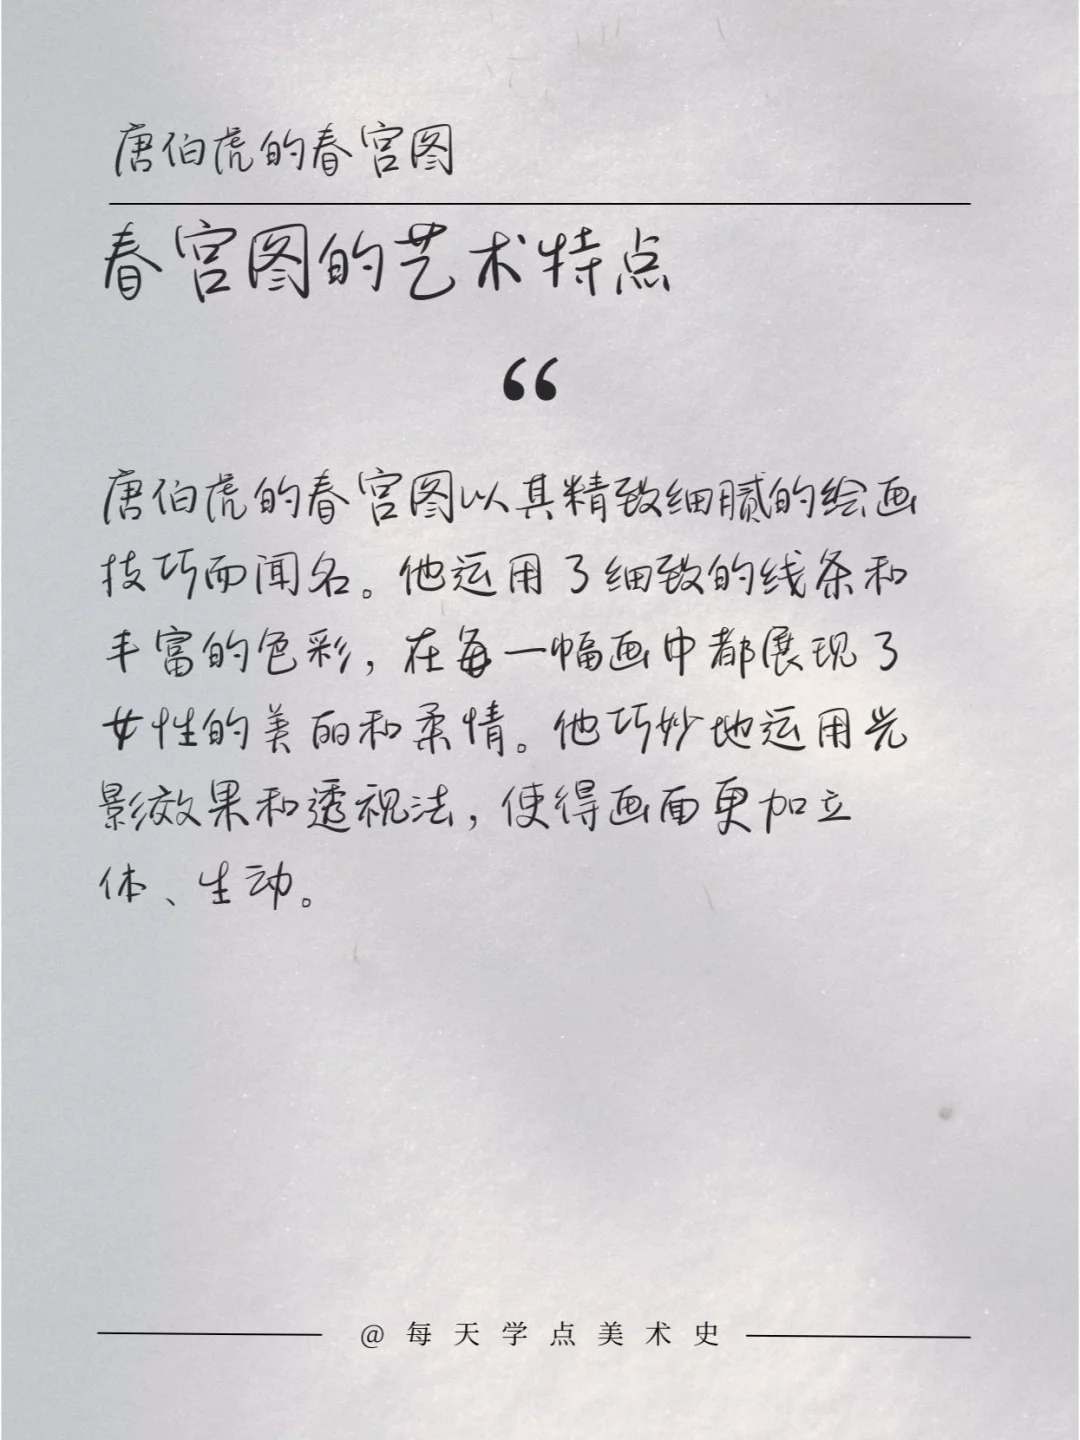 唐伯虎的春宫图
春宫图的艺术特点
“
唐伯虎的春宫图以其精致细腻的绘画
技巧而闻名。他运用了细致的线条和
丰富的色彩，在每一幅画中都展现了
女性的美丽和柔情。他巧妙地运用光
影效果和透视法，使得画面更加立
体、生动。
@每天学点美术史